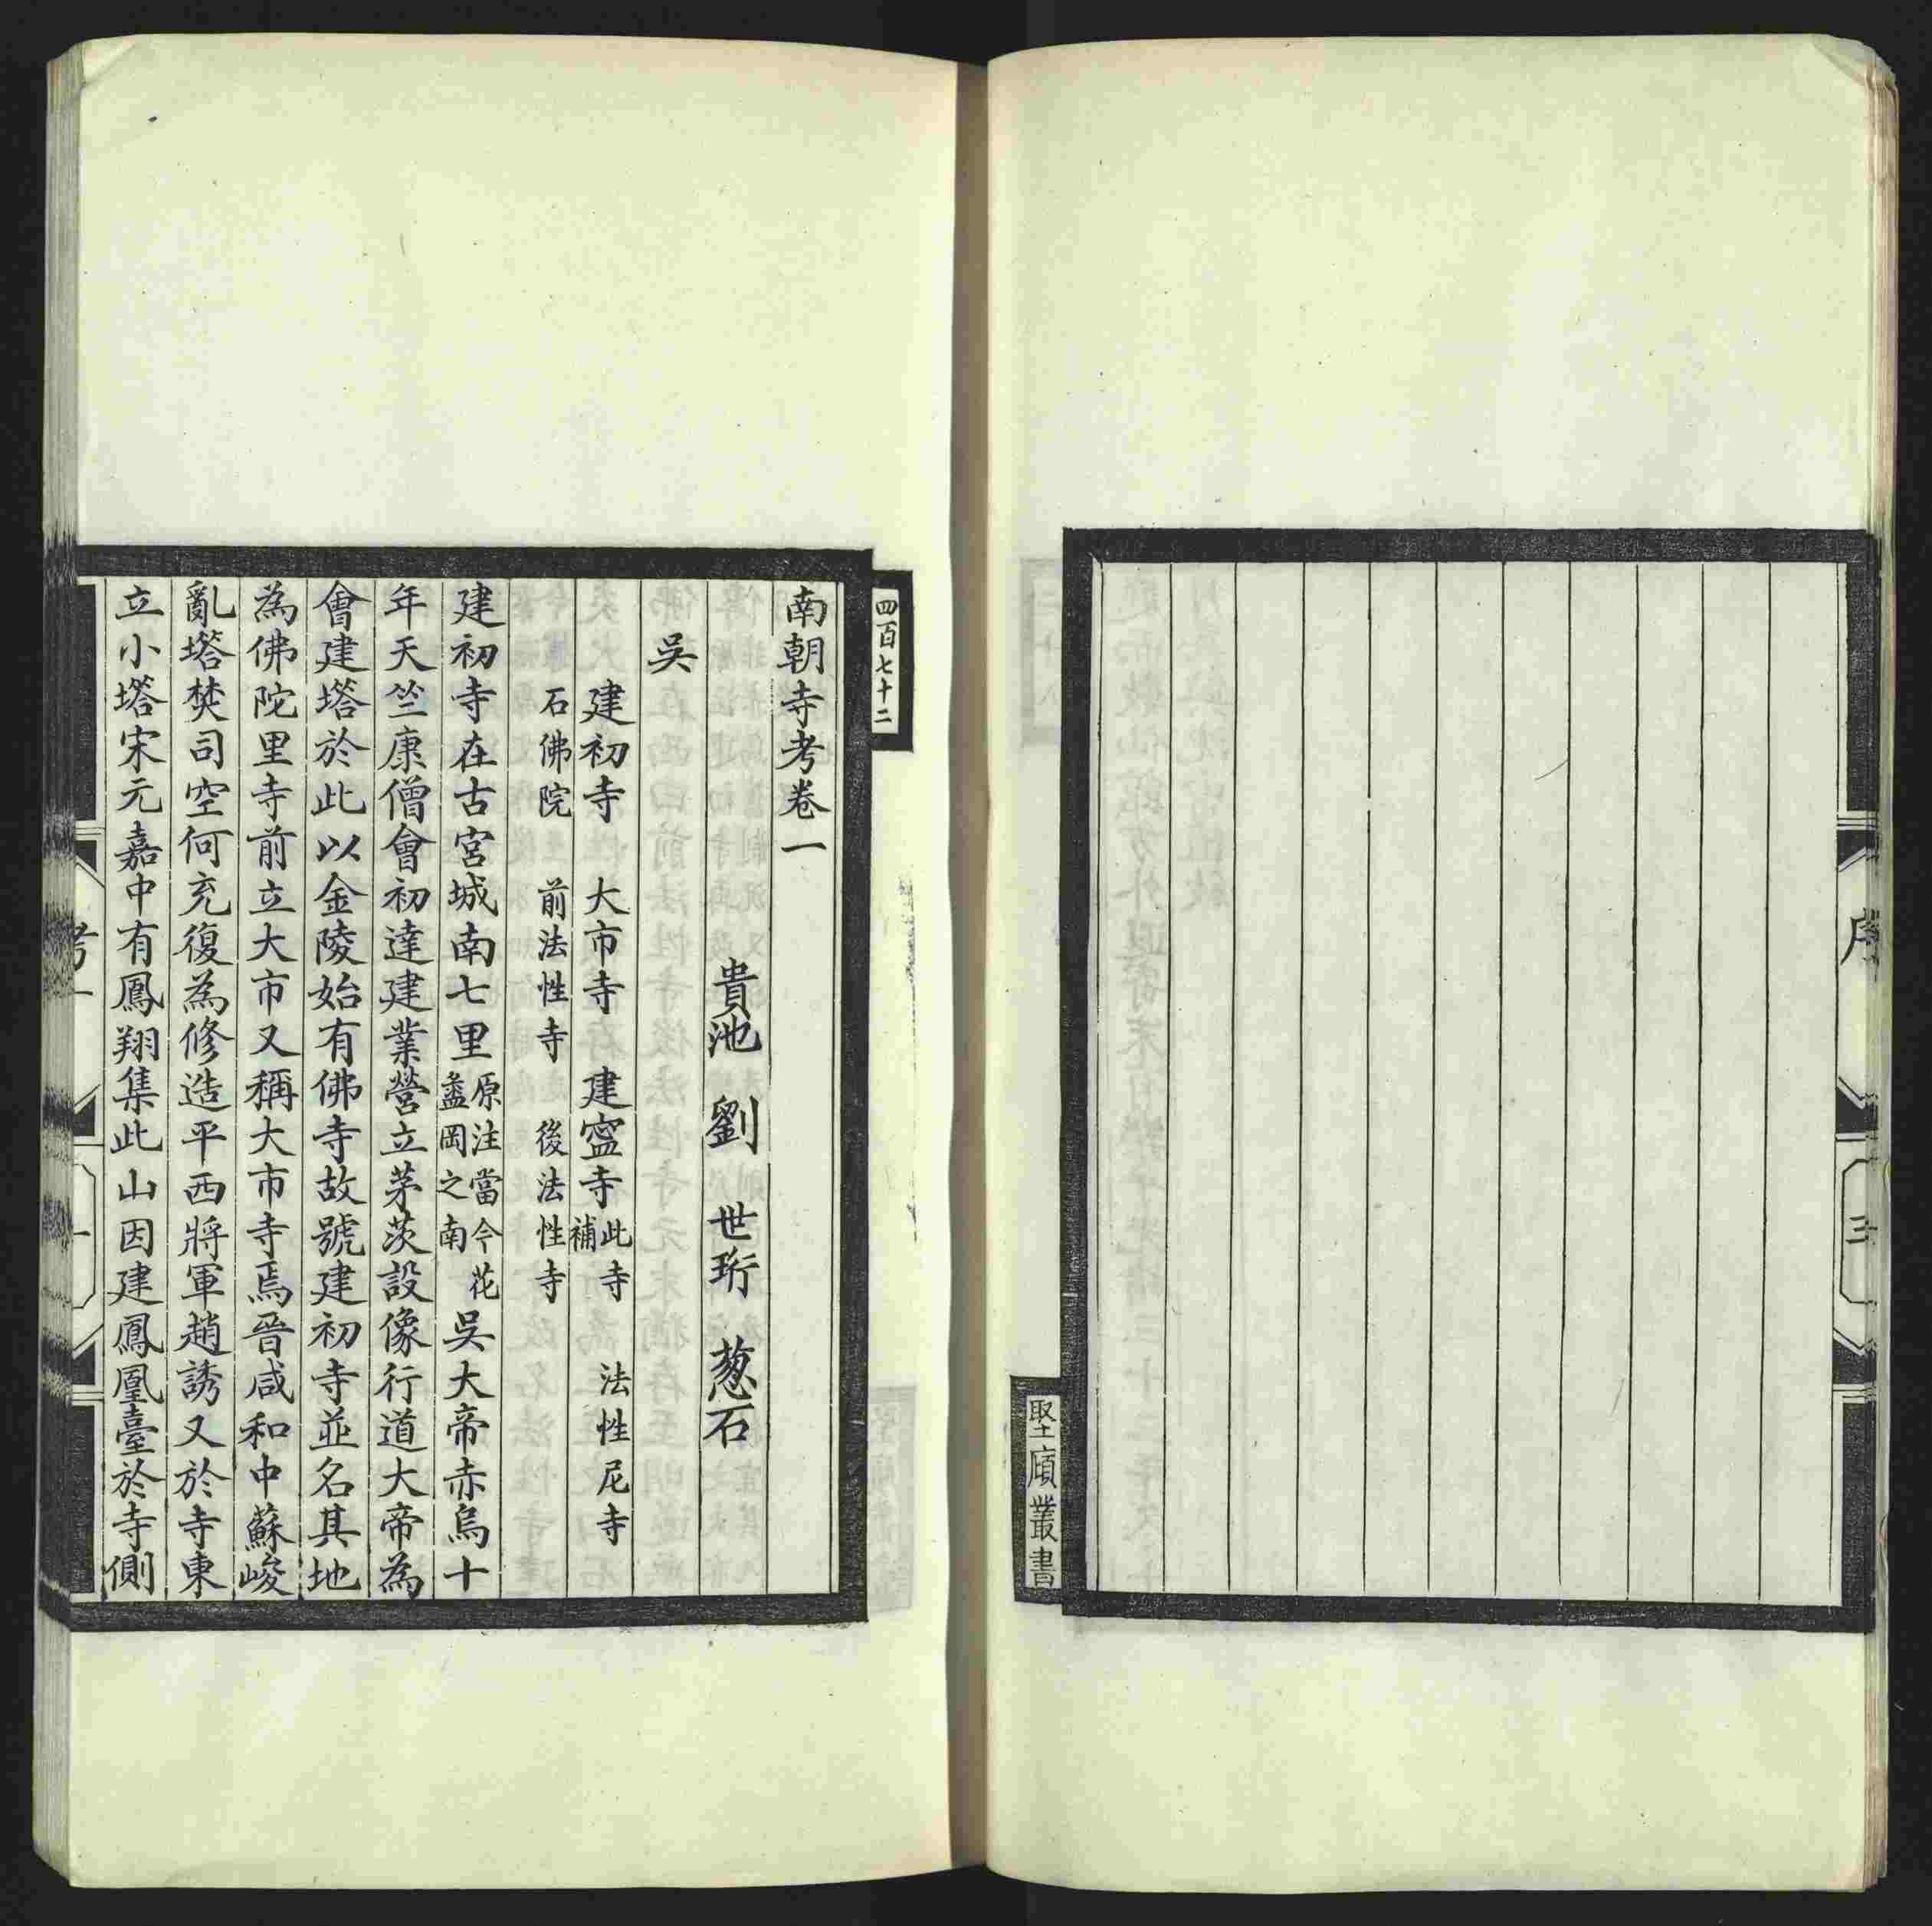 序
三
堅頎叢書
四百七十二
南朝寺考卷一
貴池 劉 世珩 葱石
吳
建初寺 大市寺 建寍寺此寺補 法性尼寺
石佛院 前法性寺 後法性寺
建初寺在古宮城南七里原注當今花盝岡之南吳大帝赤烏十
年天竺康僧會初達建業營立茅茨設像行道大帝為
會建塔於此以金陵始有佛寺故號建初寺並名其地
為佛陀里寺前立大市又稱大市寺焉晉咸和中蘇峻
亂塔焚司空何充復為修造平西將軍趙誘又於寺東
立小塔宋元嘉中有鳳翔集此山因建鳳凰臺於寺側
考一
一